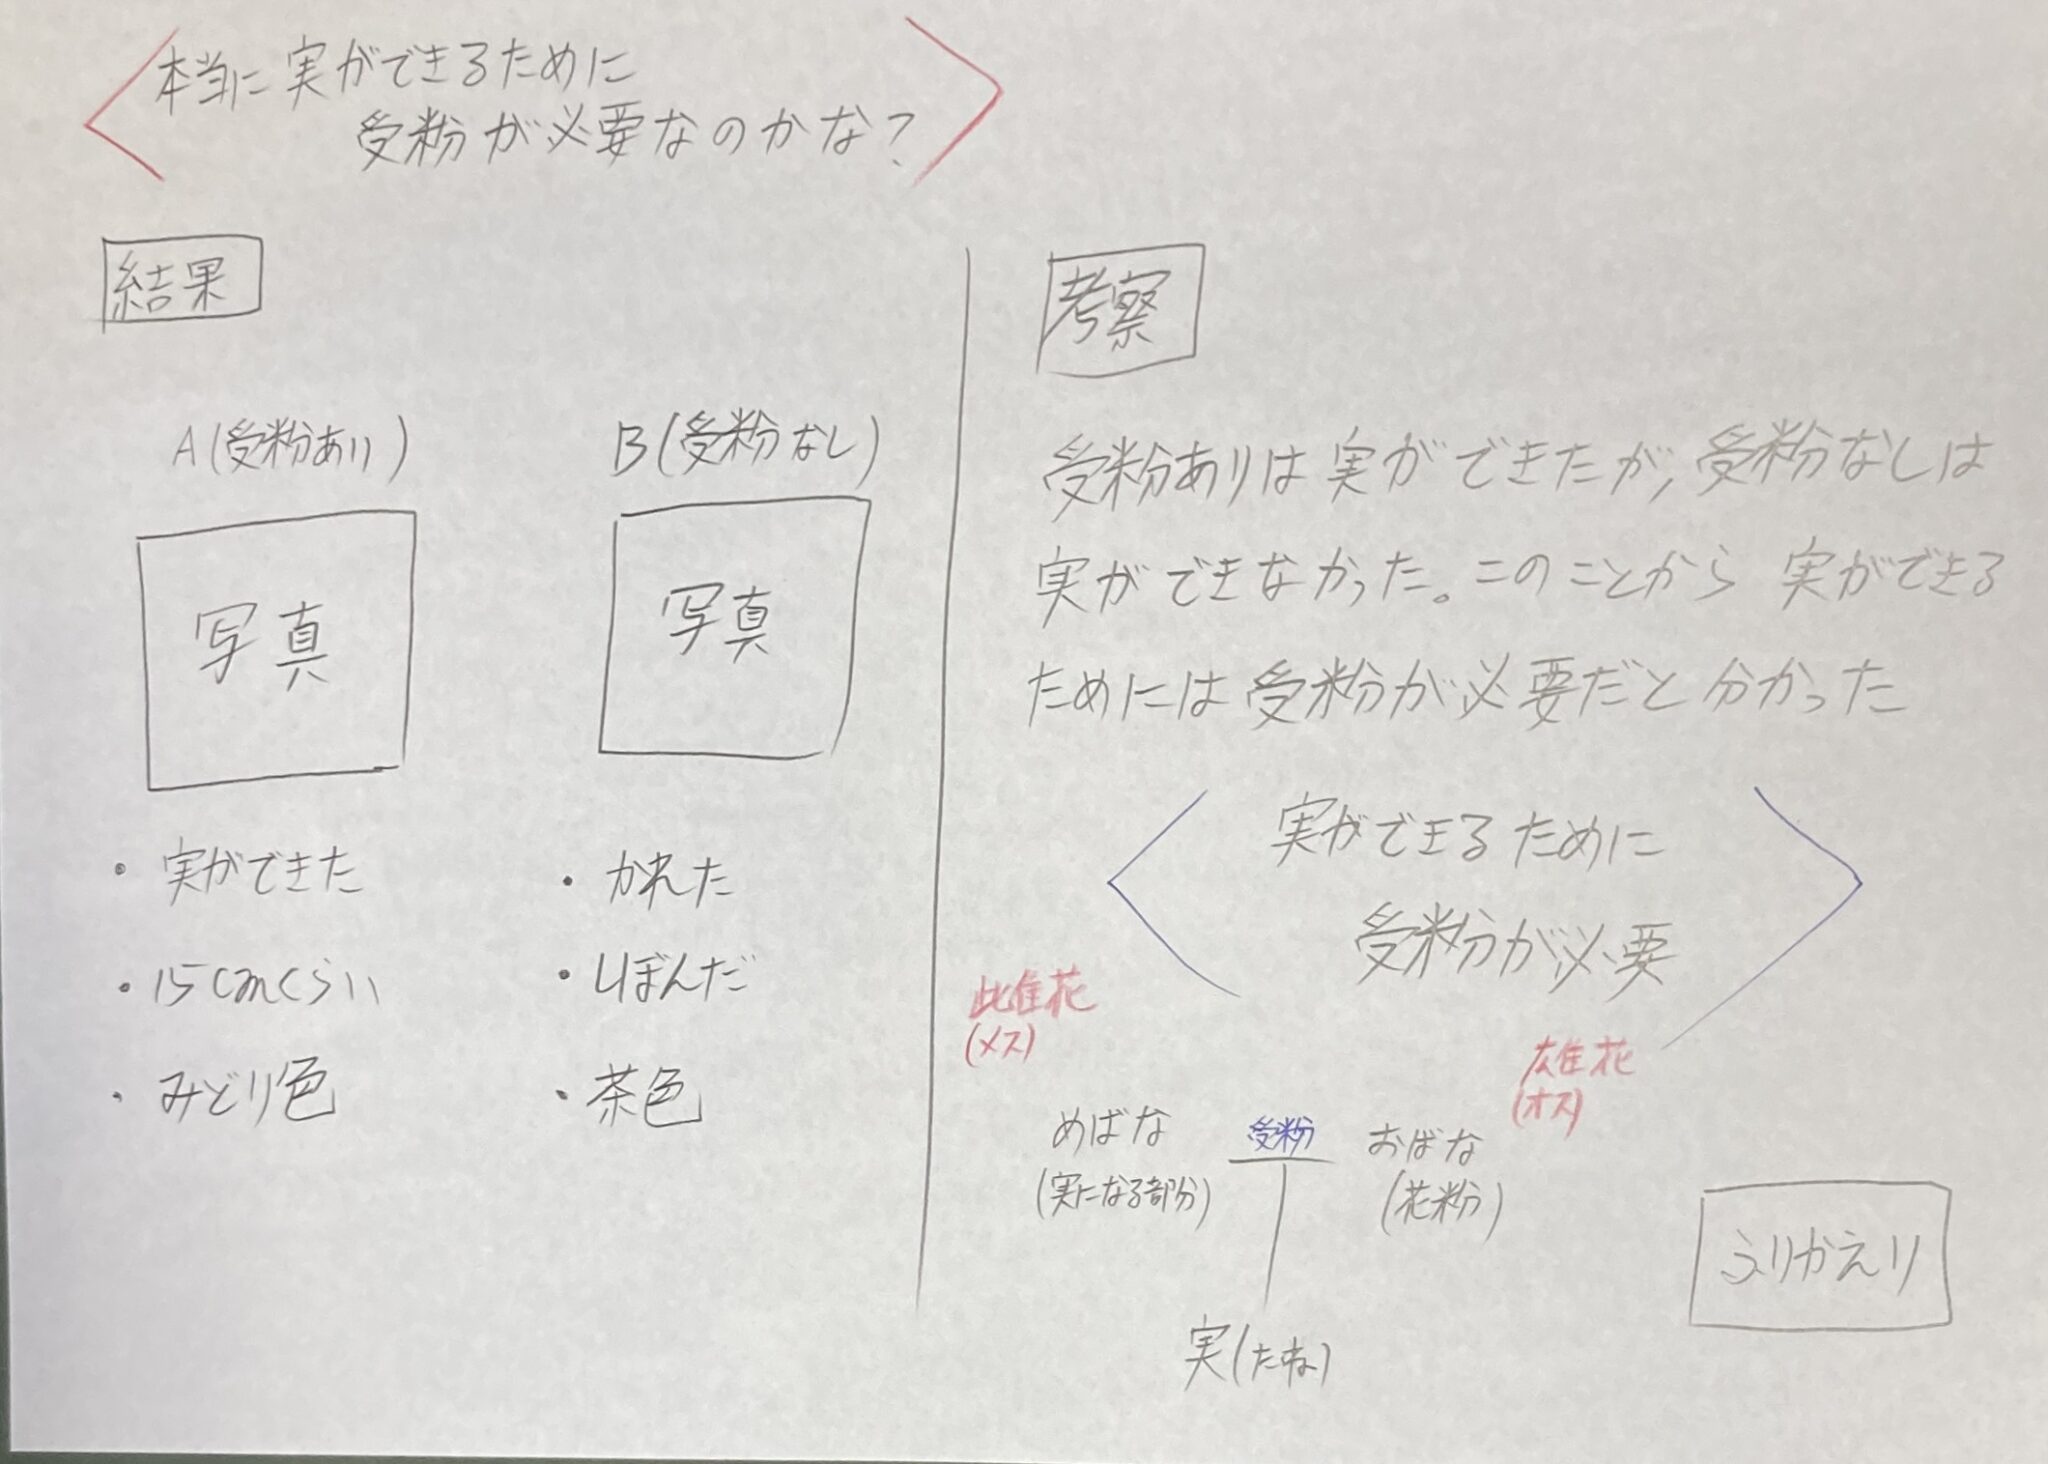 本当に実ができるために
受粉が必要なのかな?
結果
A(受粉あり)
B(受粉なし)
写真
写真
・実ができた
・15cmくらい
・みどり色
・かれた
・しぼんだ
・茶色
考察
受粉ありは実ができたが,受粉なしは
実ができなかった。このことから 実ができる
ためには受粉が必要だと分かった
実ができるために
受粉が必要
雌花
(メス)
雄花
(オス)
めばな
(実になる部分)
受粉
おばな
(花粉)
実(たね)
ふりかえり